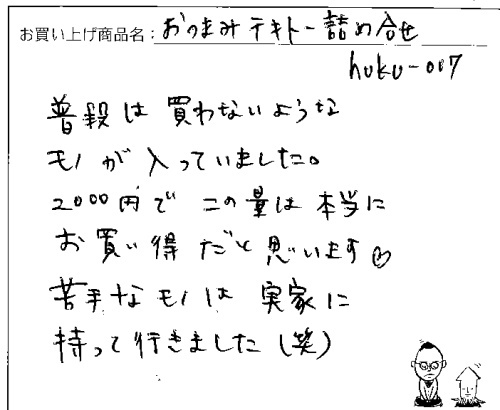 お買い上げ商品名：おつまみテキトー詰め合せ
huku-007
普段は買わないような
モノが入っていました。
2000円でこの量は本当に
お買い得だと思います
苦手なモノは実家に
持って行きました（笑）